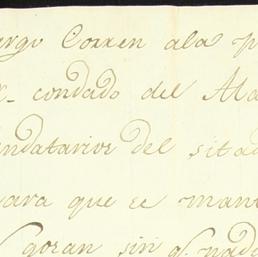 argo Corren ala p
condado del Ala
ndatarios del sitad
para que se mant
goran sin q. nada